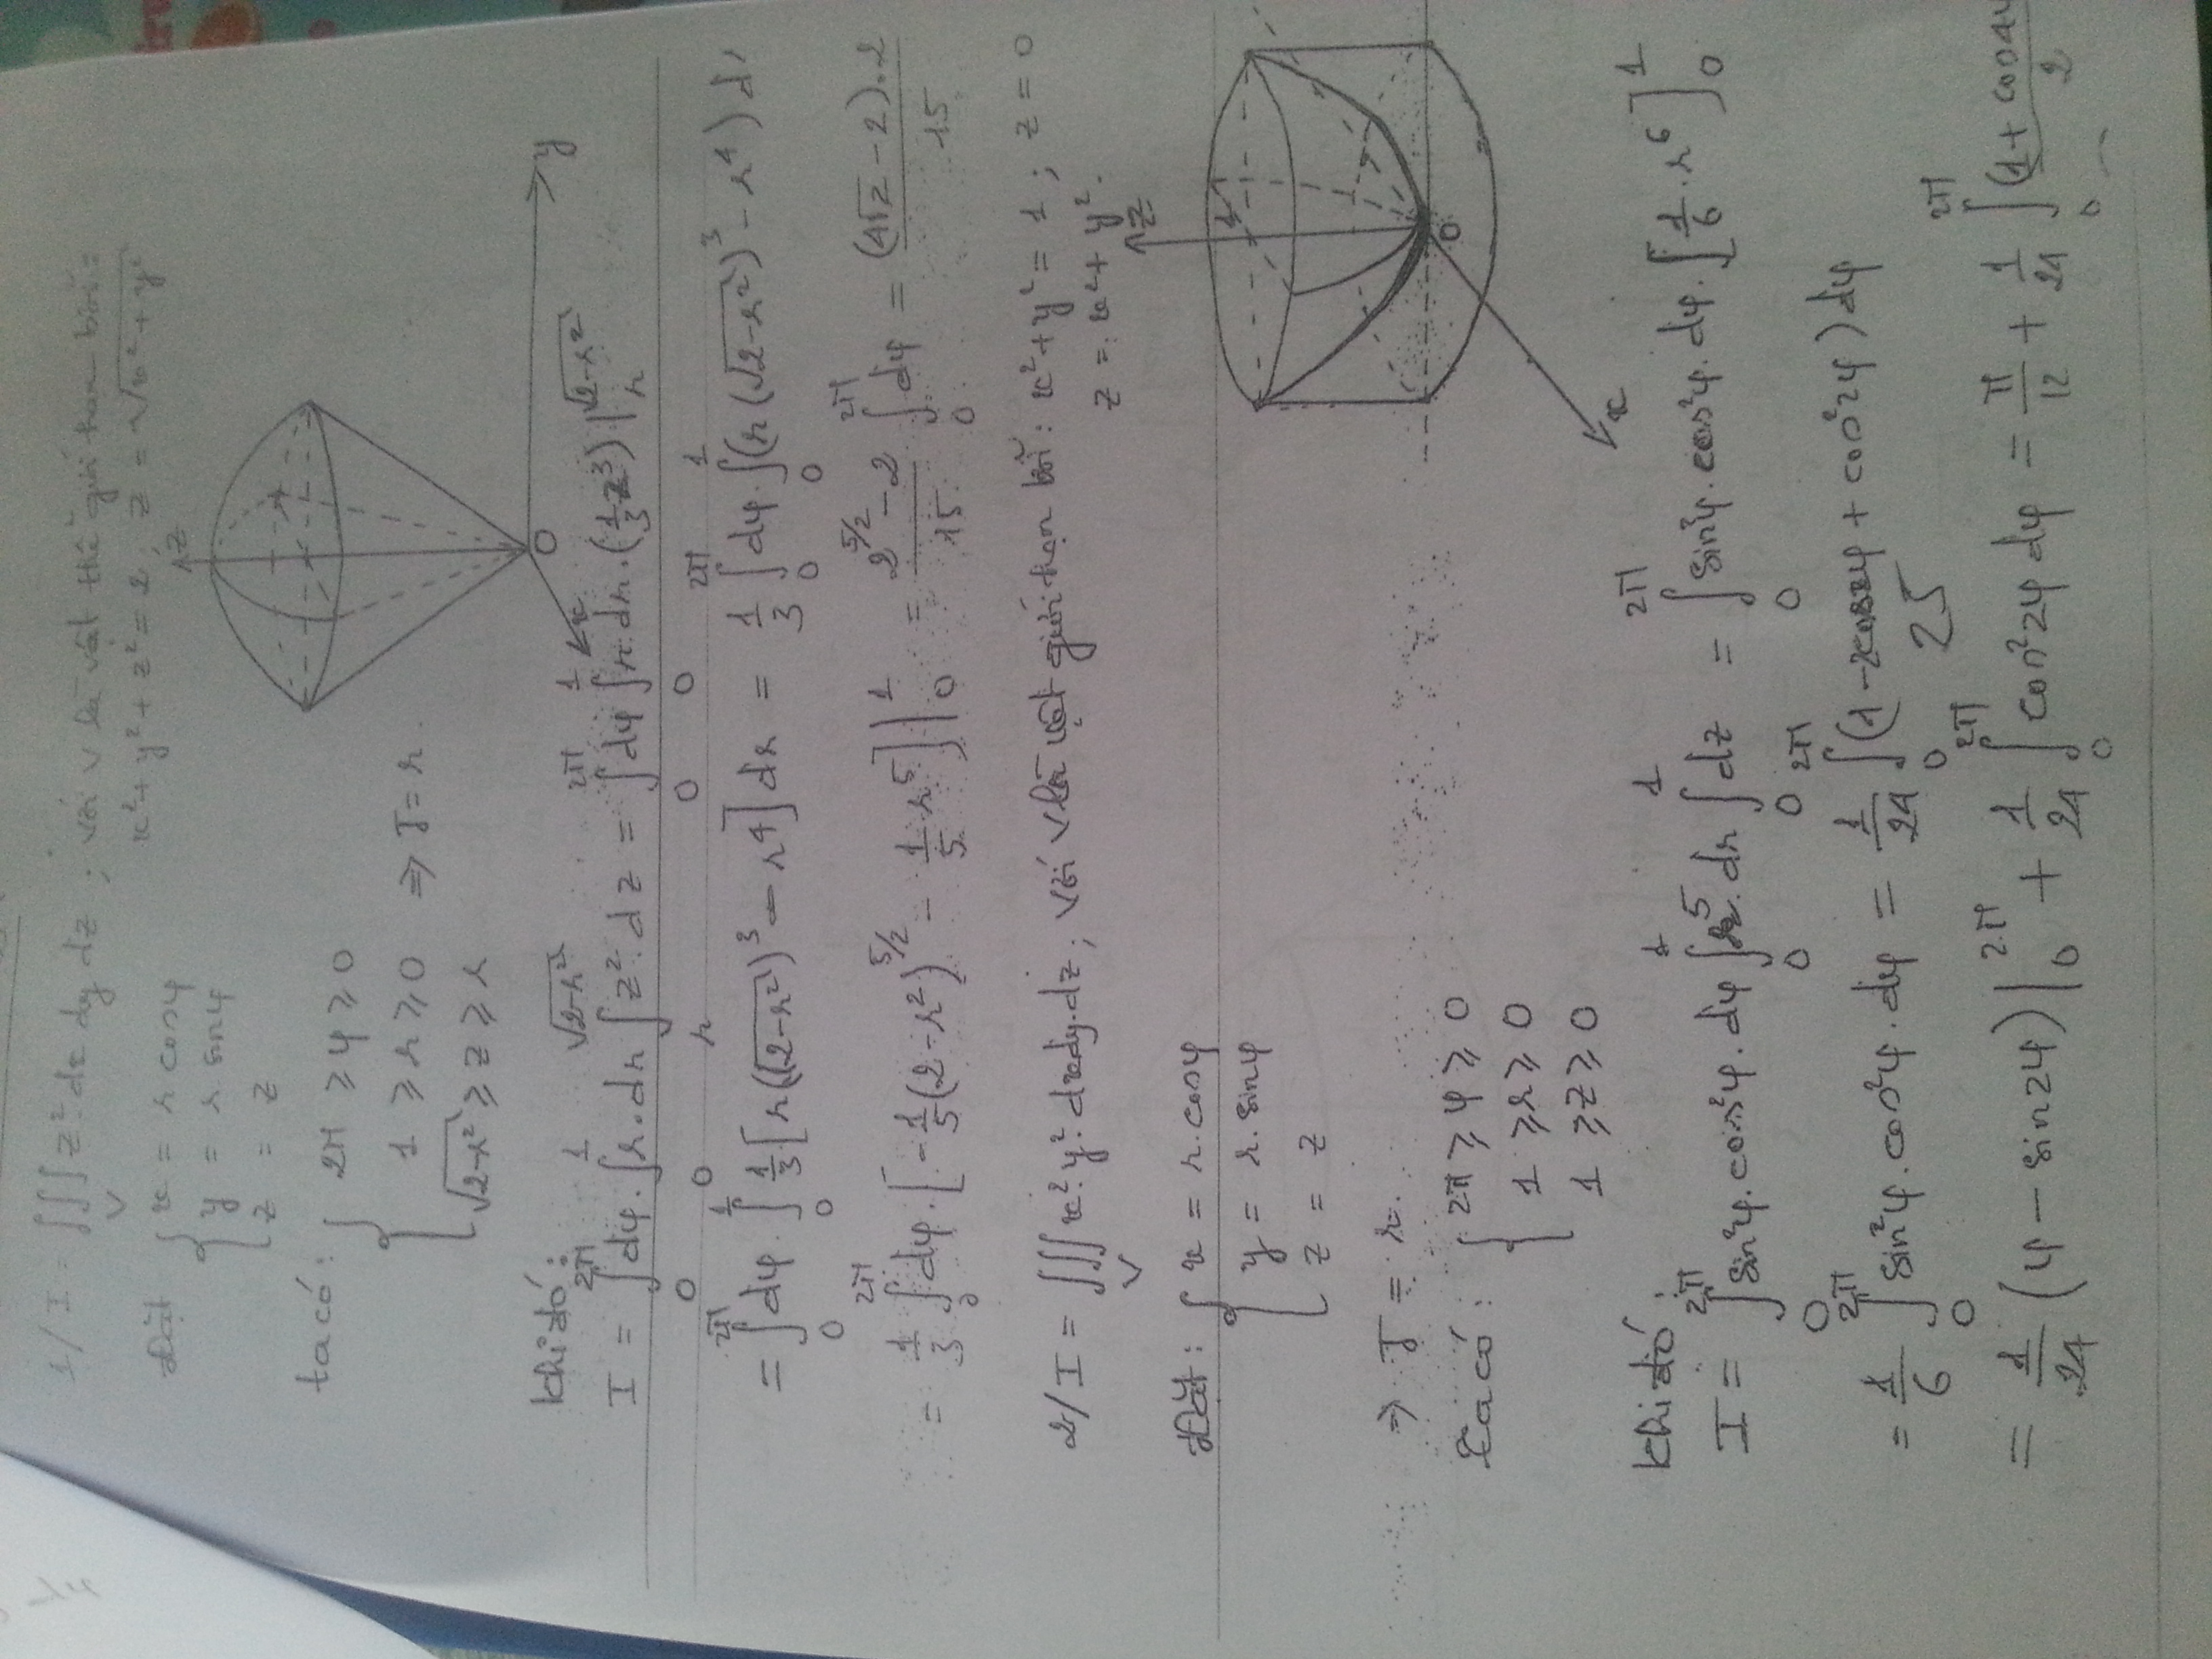 1/ I = ∭ z². dx dy dz ; với V là vật thể giới hạn bởi:
V
x² + y² + z² = 2 ; z = √(x² + y²)
Đặt { x = r cosφ
y = r sinφ
z = z
z
ta có: { 2π ≥ φ ≥ 0
1 ≥ r ≥ 0 ⇒ J = r.
√(2-r²) ≥ z ≥ r
O y
x
Khi đó:
I = ∫₀^{2π} dφ. ∫₀^1 r.dr ∫_r^{√(2-r²)} z². dz = ∫₀^{2π} dφ ∫₀^1 r.dr.(1/3 z³) |_r^{√(2-r²)}
= ∫₀^{2π} dφ. ∫₀^1 1/3 [r(√(2-r²))³ - r⁴] dr = 1/3 ∫₀^{2π} dφ. ∫₀^1 (r(√(2-r²))³ - r⁴) d
= 1/3 ∫₀^{2π} dφ. [-1/5 (2-r²)^{5/2} - 1/5 r⁵] |₀^1 = (2^{5/2} - 2)/15 ∫₀^{2π} dφ = (4√2 - 2).2 / 15
2/ I = ∭ x². y². dxdy.dz ; Với V là vật giới hạn bởi: x² + y² = 1 ; z = 0
V
z = x² + y².
z
Đặt: { x = r. cosφ
y = r. sinφ
z = z
1
⇒ J = r.
O
Ta có: { 2π ≥ φ ≥ 0
1 ≥ r ≥ 0
1 ≥ z ≥ 0
x
Khi đó:
I = ∫₀^{2π} sin²φ. cos²φ. dφ ∫₀^1 r⁵. dr ∫₀^1 dz = ∫₀^{2π} sin²φ. cos²φ. dφ. [1/6 . r⁶]₀^1
= 1/6 ∫₀^{2π} sin²φ. cos²φ. dφ = 1/24 ∫₀^{2π} (1 - 2cos2φ + cos²2φ) dφ
25
= 1/24 (φ - sin2φ) |₀^{2π} + 1/24 ∫₀^{2π} cos²2φ dφ = π/12 + 1/24 ∫₀^{2π} (1 + cos4φ / 2